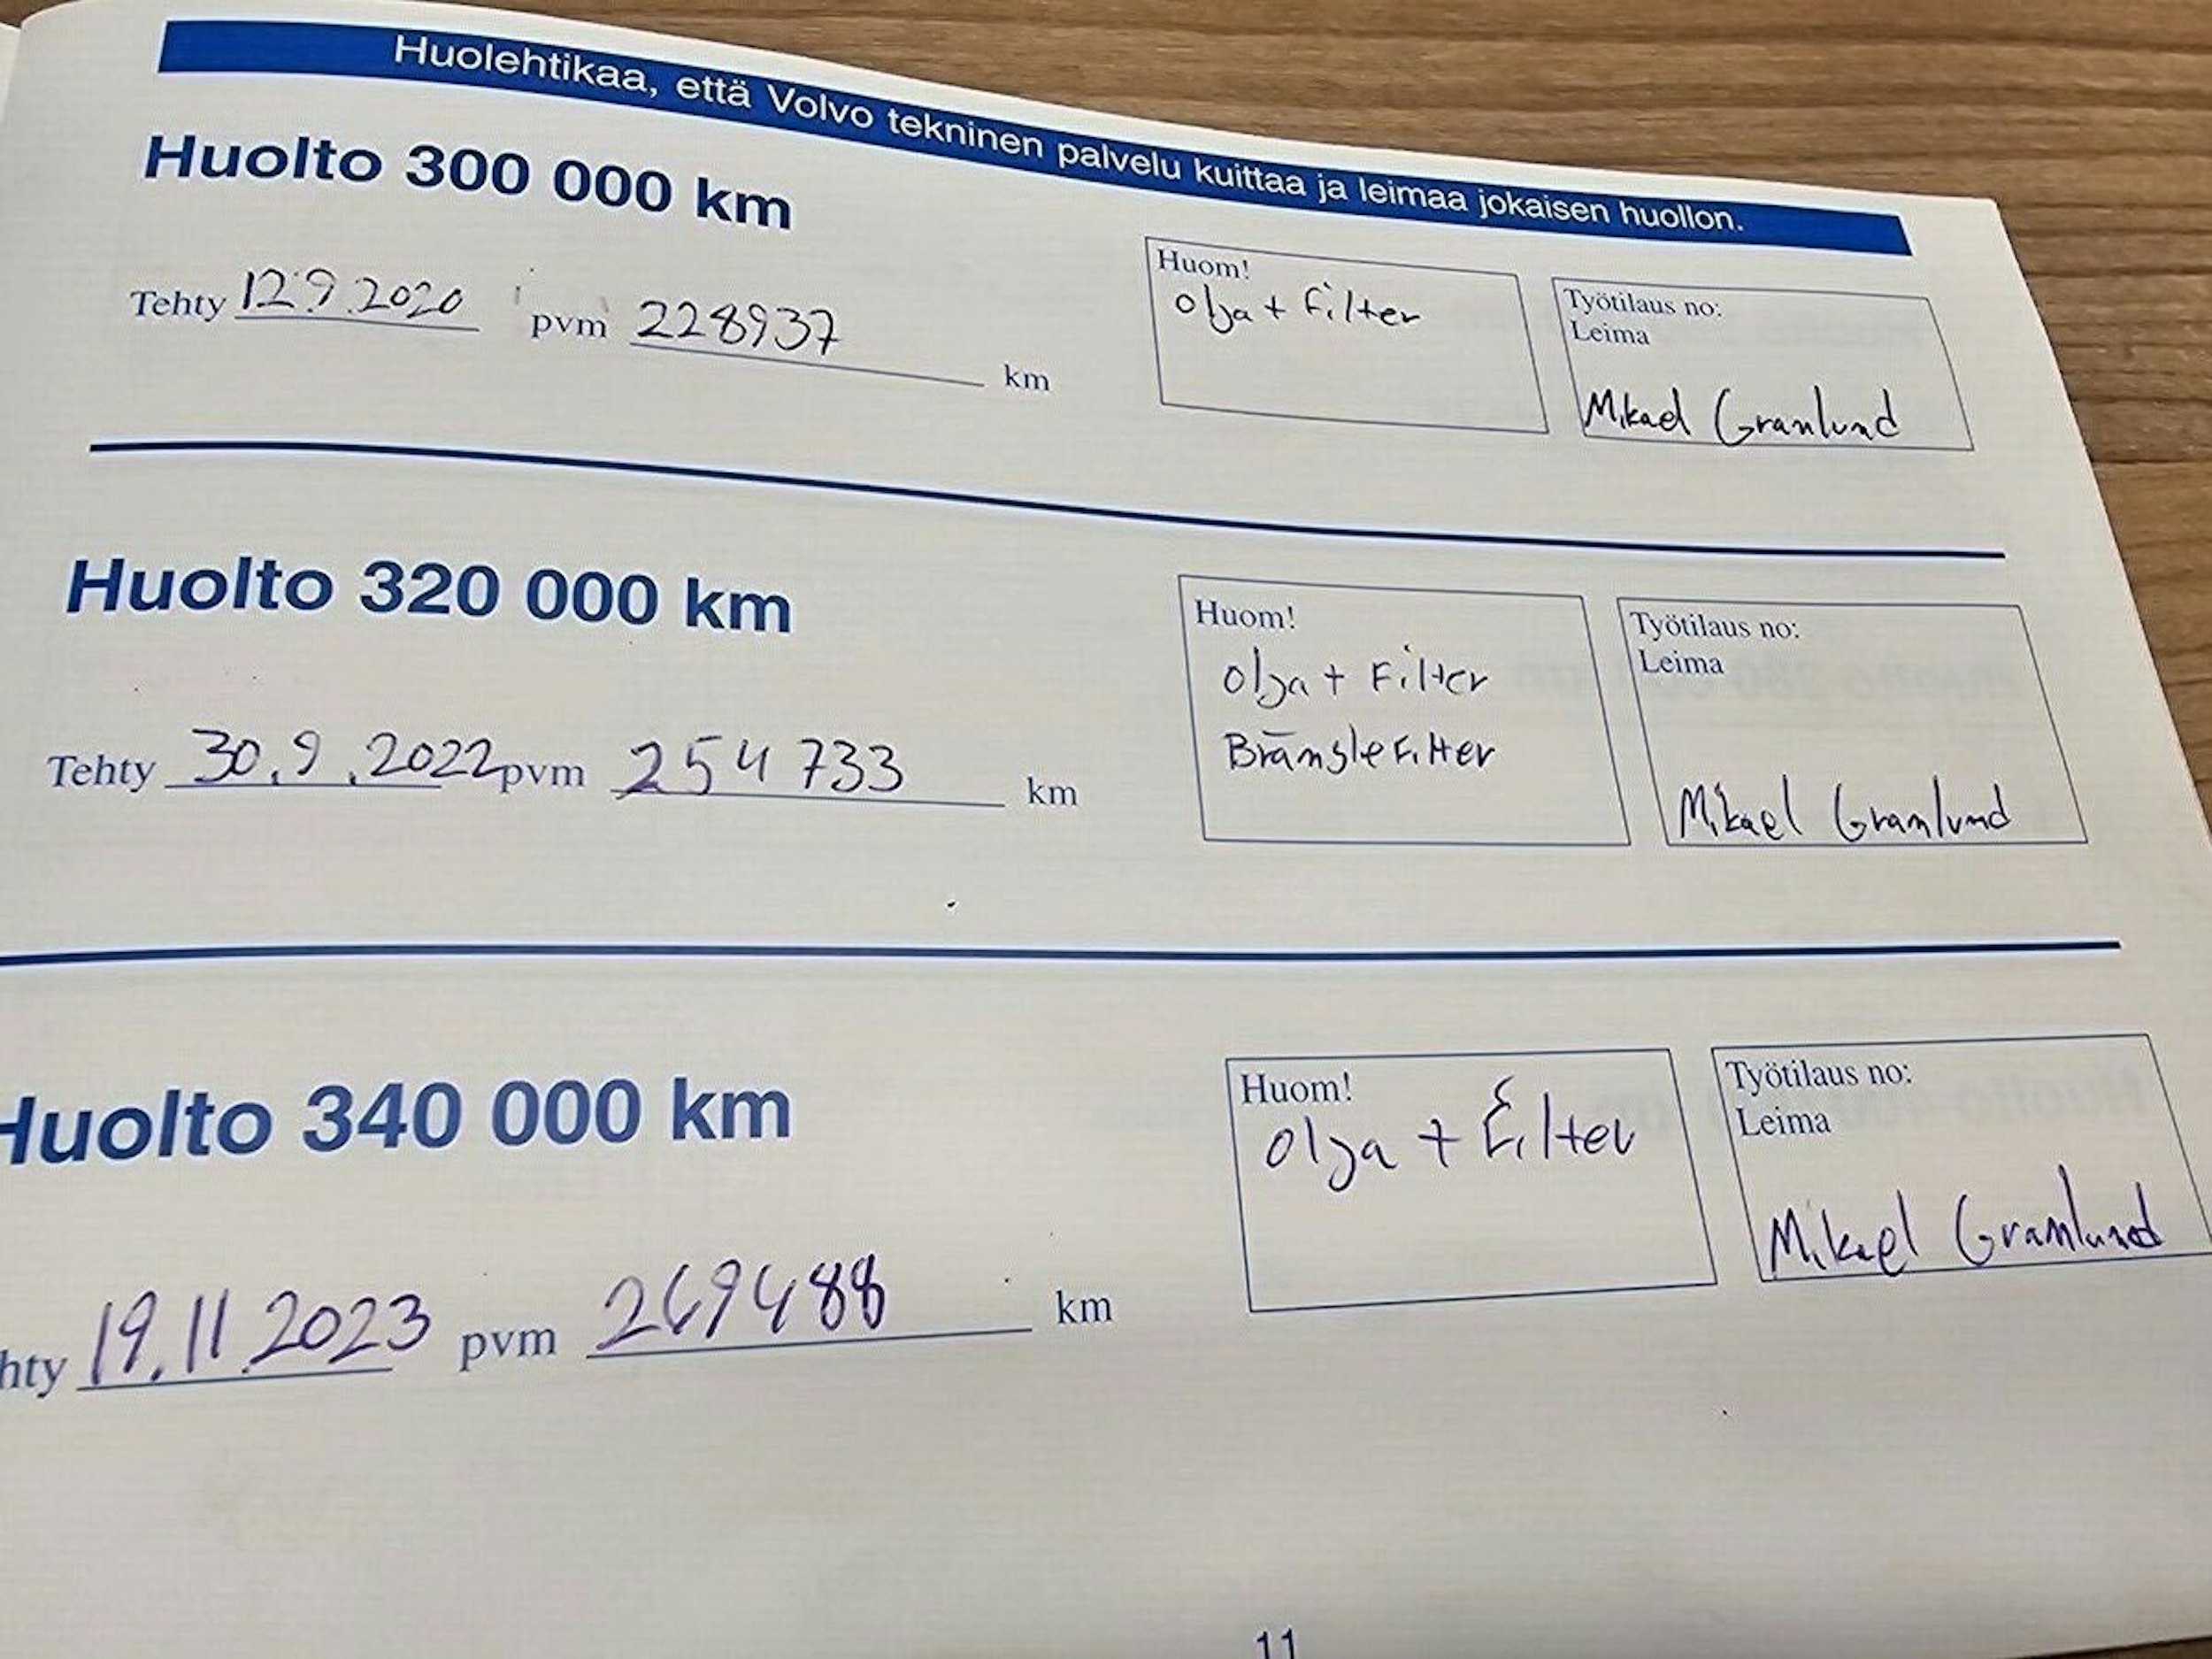 Huolehtikaa, että Volvo tekninen palvelu kuittaa ja leimaa jokaisen huollon.
Huolto 300 000 km
Tehty 12.9.2020 pvm 228937 km
Huom!
Olja + Filter
Työtilaus no:
Leima
Mikael Granlund
Huolto 320 000 km
Tehty 30.9.2022 pvm 254 733 km
Huom!
Olja + Filter
Bränslefilter
Työtilaus no:
Leima
Mikael Granlund
Huolto 340 000 km
hty 19.11.2023 pvm 269488 km
Huom!
Olja + Filter
Työtilaus no:
Leima
Mikael Granlund
11